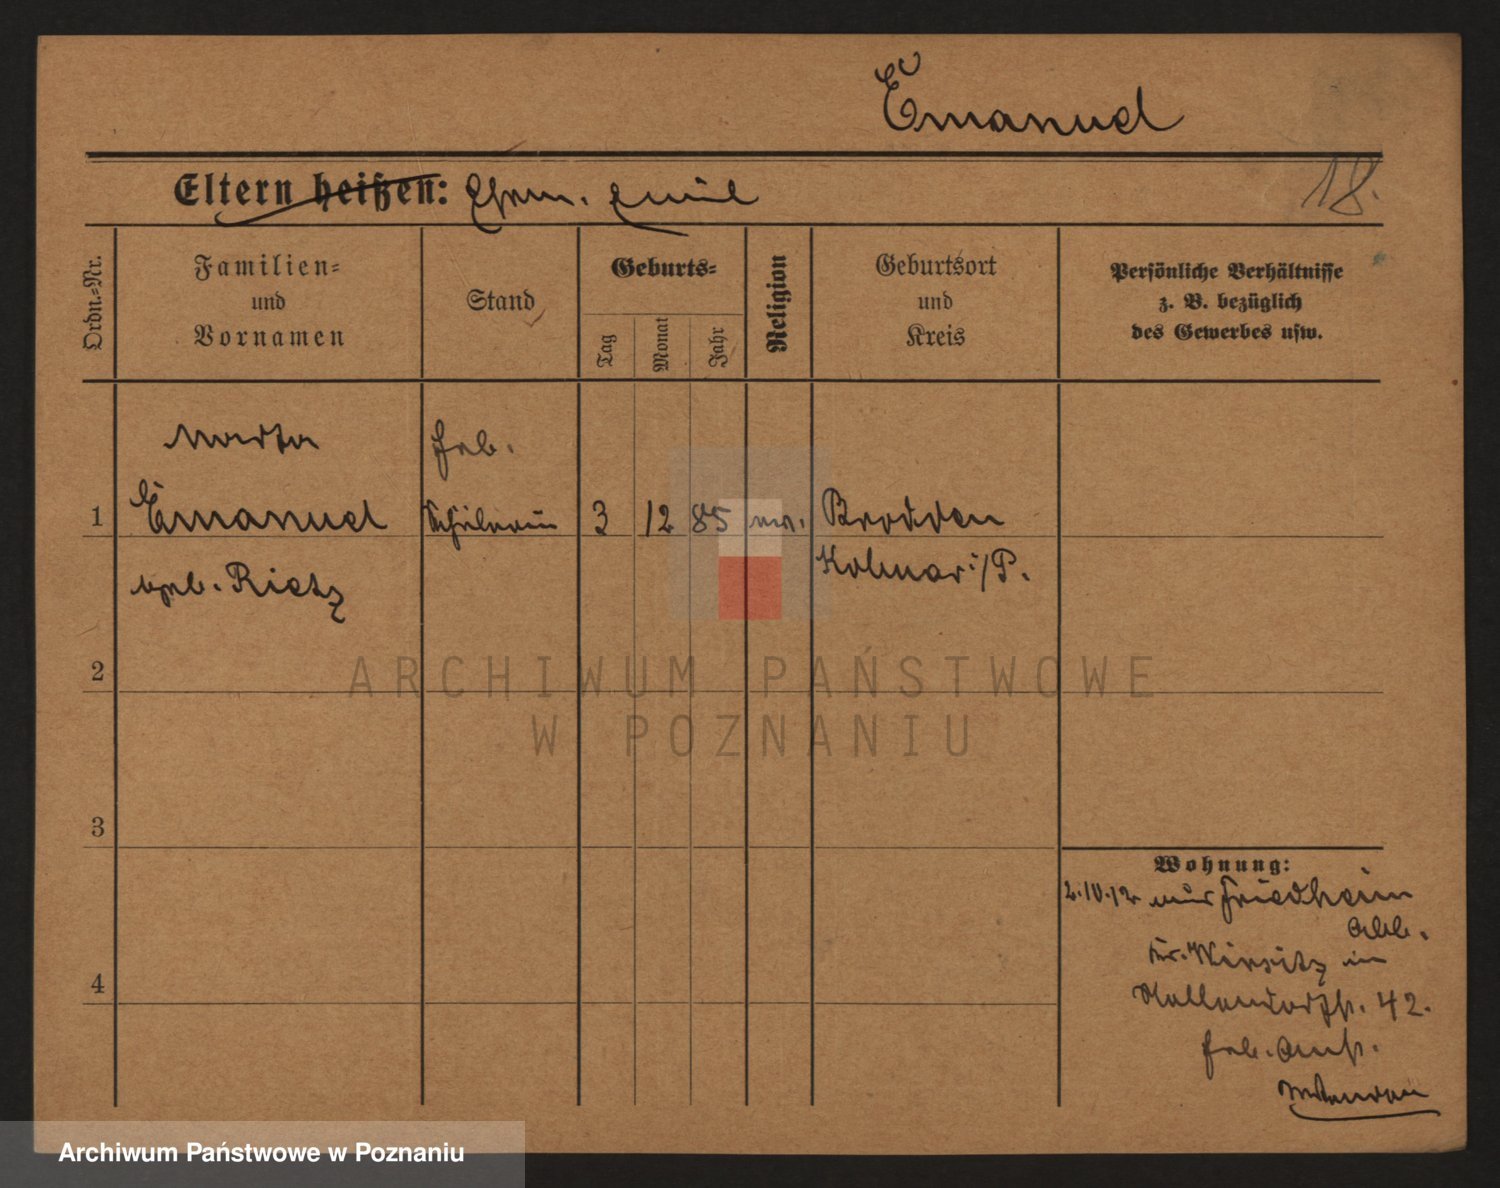 Emanuel
Eltern heißen: Ehem. Emil
18.
Ordn.=Nr.
Familien=
und
Vornamen
Stand
Geburts=
Tag
Monat
Jahr
Religion
Geburtsort
und
Kreis
Persönliche Verhältnisse
z. B. bezüglich
des Gewerbes usw.
Martha
1 Emanuel 3 12 85 Brodden
geb. Rietz Kolmar i/P.
2
3
4
Wohnung:
2.10.12 aus Friedheim
Kr. Wirsitz in
42.
ARCHIWUM PAŃSTWOWE
W POZNANIU
Archiwum Państwowe w Poznaniu